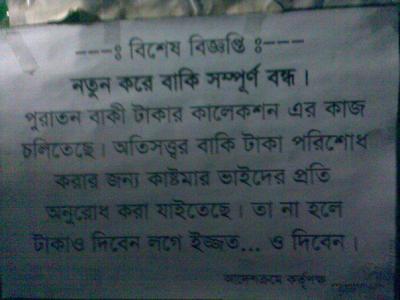 ---ঃ বিশেষ বিজ্ঞপ্তি ঃ---
নতুন করে বাকি সম্পূর্ণ বন্ধ।
পুরাতন বাকী টাকার কালেকশন এর কাজ
চলিতেছে। অতিসত্ত্বর বাকি টাকা পরিশোধ
করার জন্য কাষ্টমার ভাইদের প্রতি
অনুরোধ করা যাইতেছে। তা না হলে
টাকাও দিবেন লগে ইজ্জত... ও দিবেন।
আদেশক্রমে কর্তৃপক্ষ